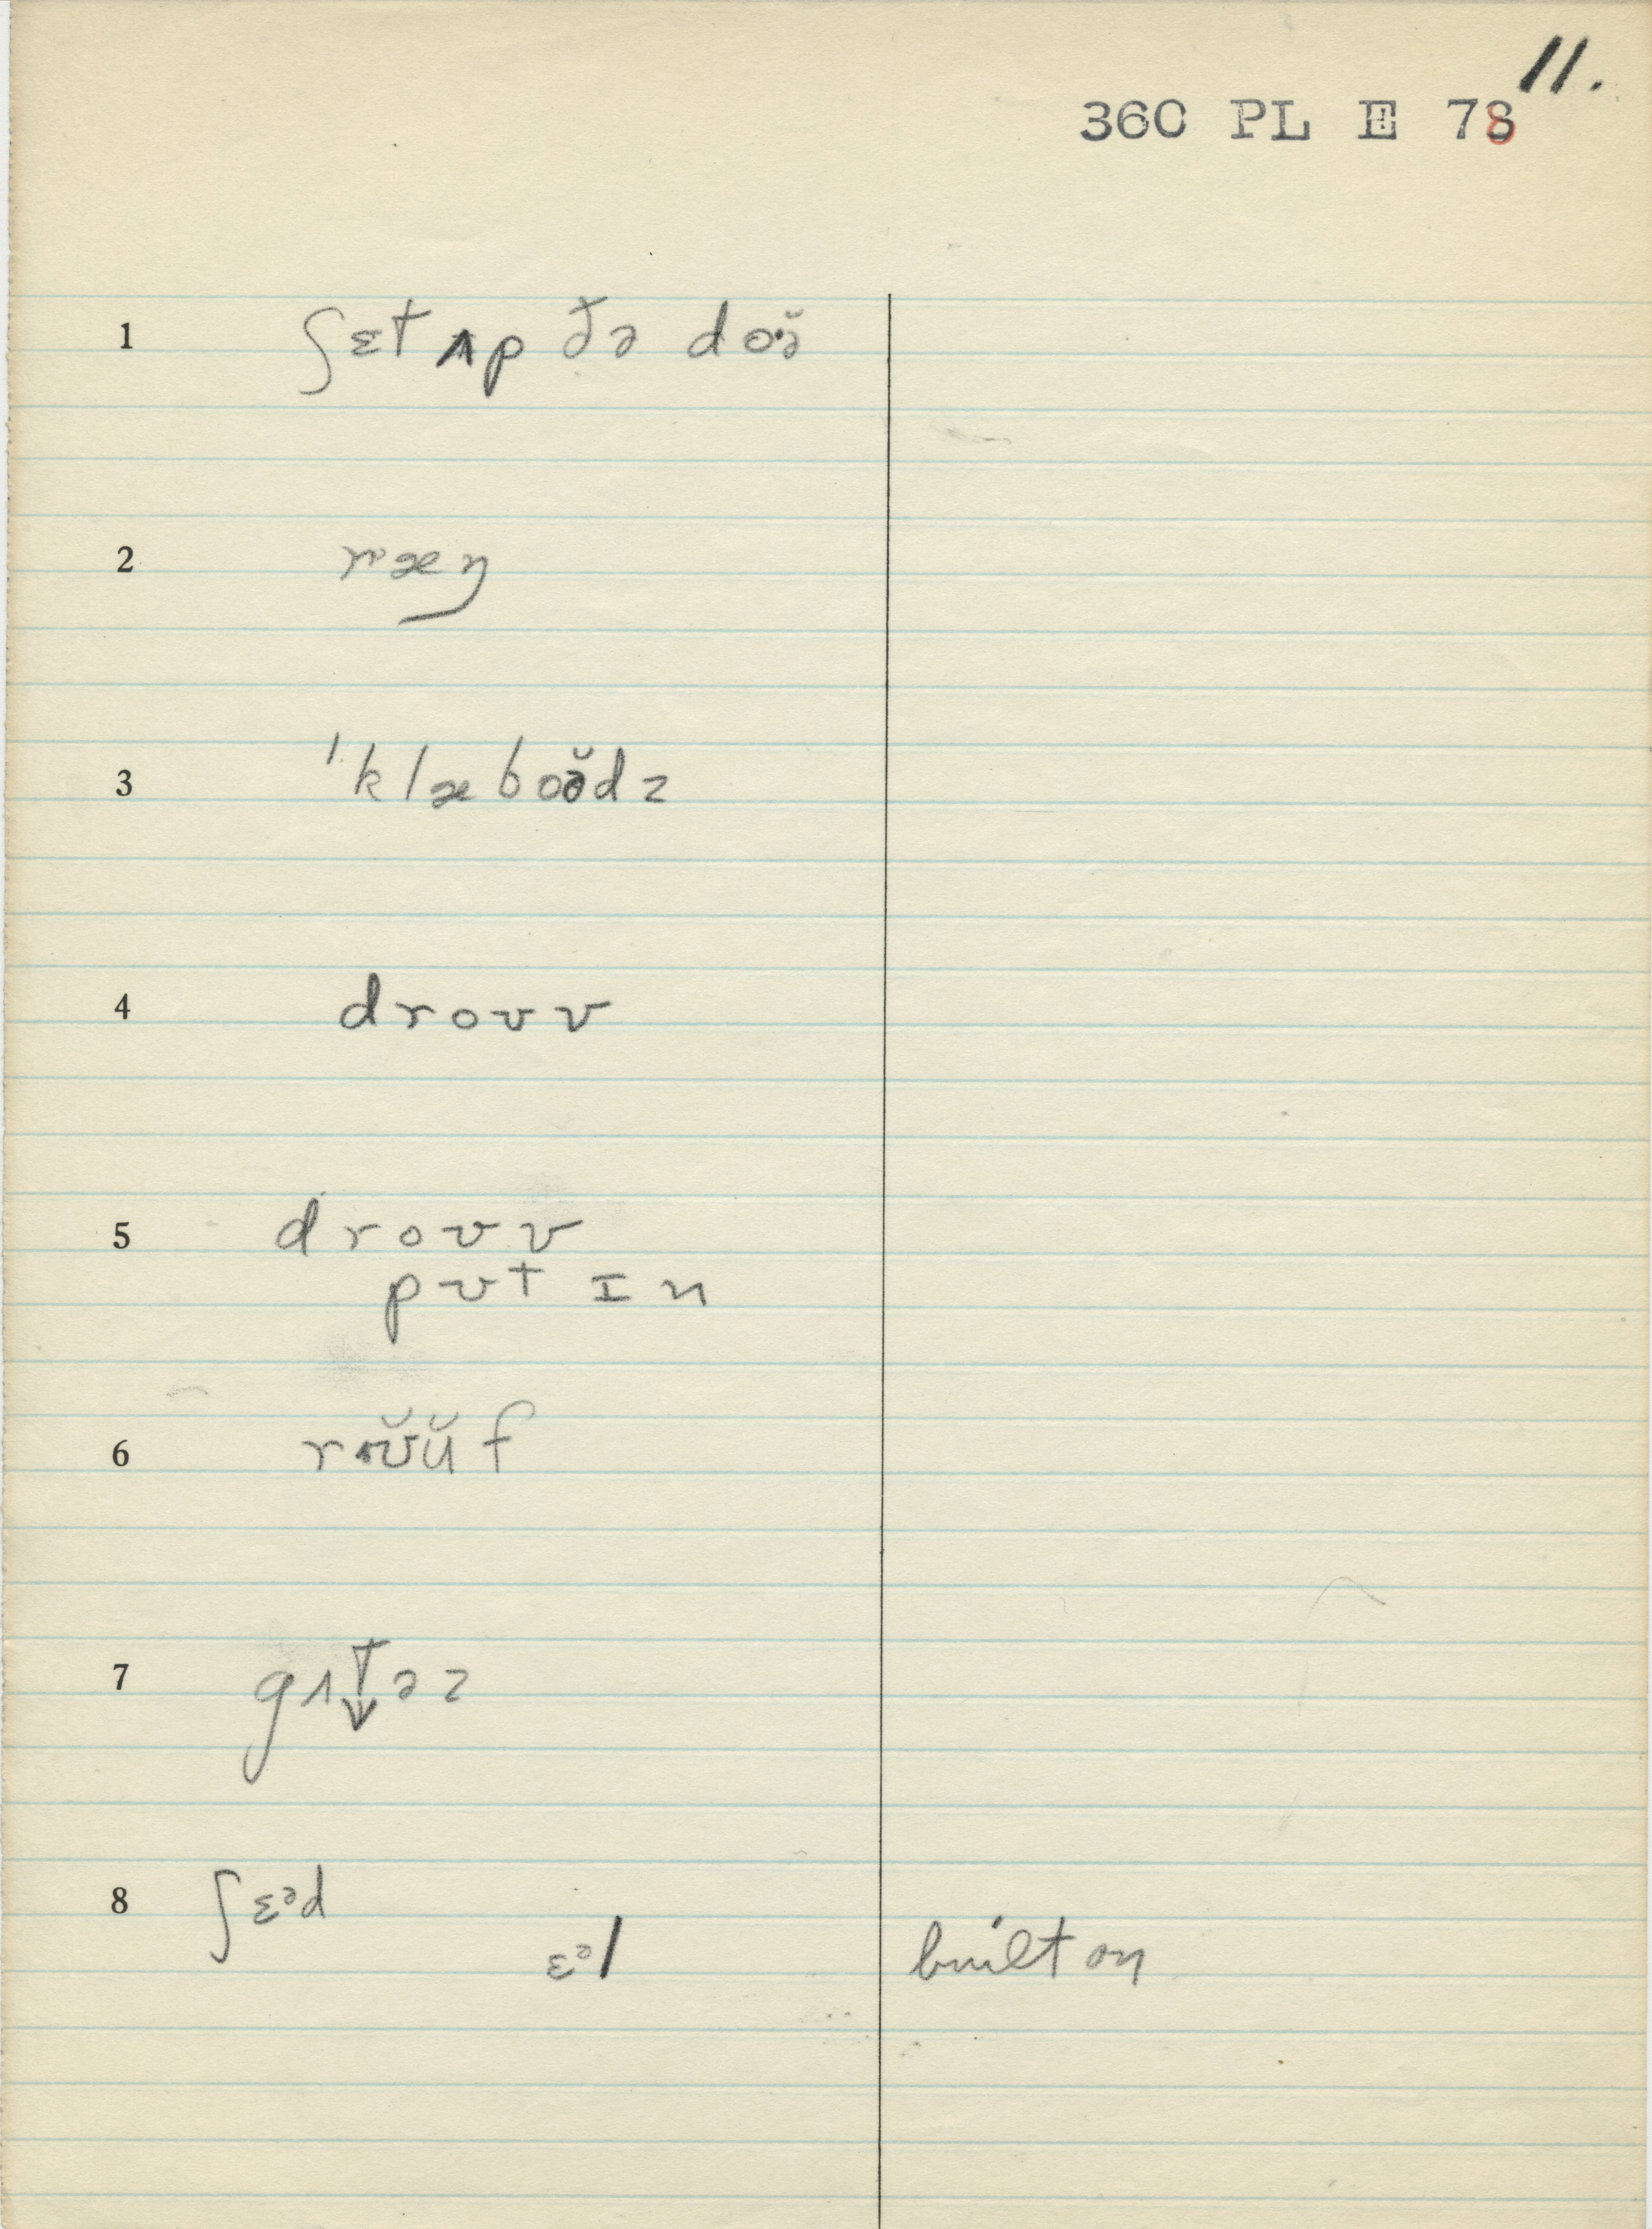 11.
360 PL E 78
1 ʃɛt ʌp ðə doə̆
2 ræŋ
3 ˈklæboə̆dz
4 droʊv
5 droʊv
pʊt ɪn
6 rʊ̆ŭf
7 gʌt̬əz
8 ʃɛᵊd
ɛᵊl built on